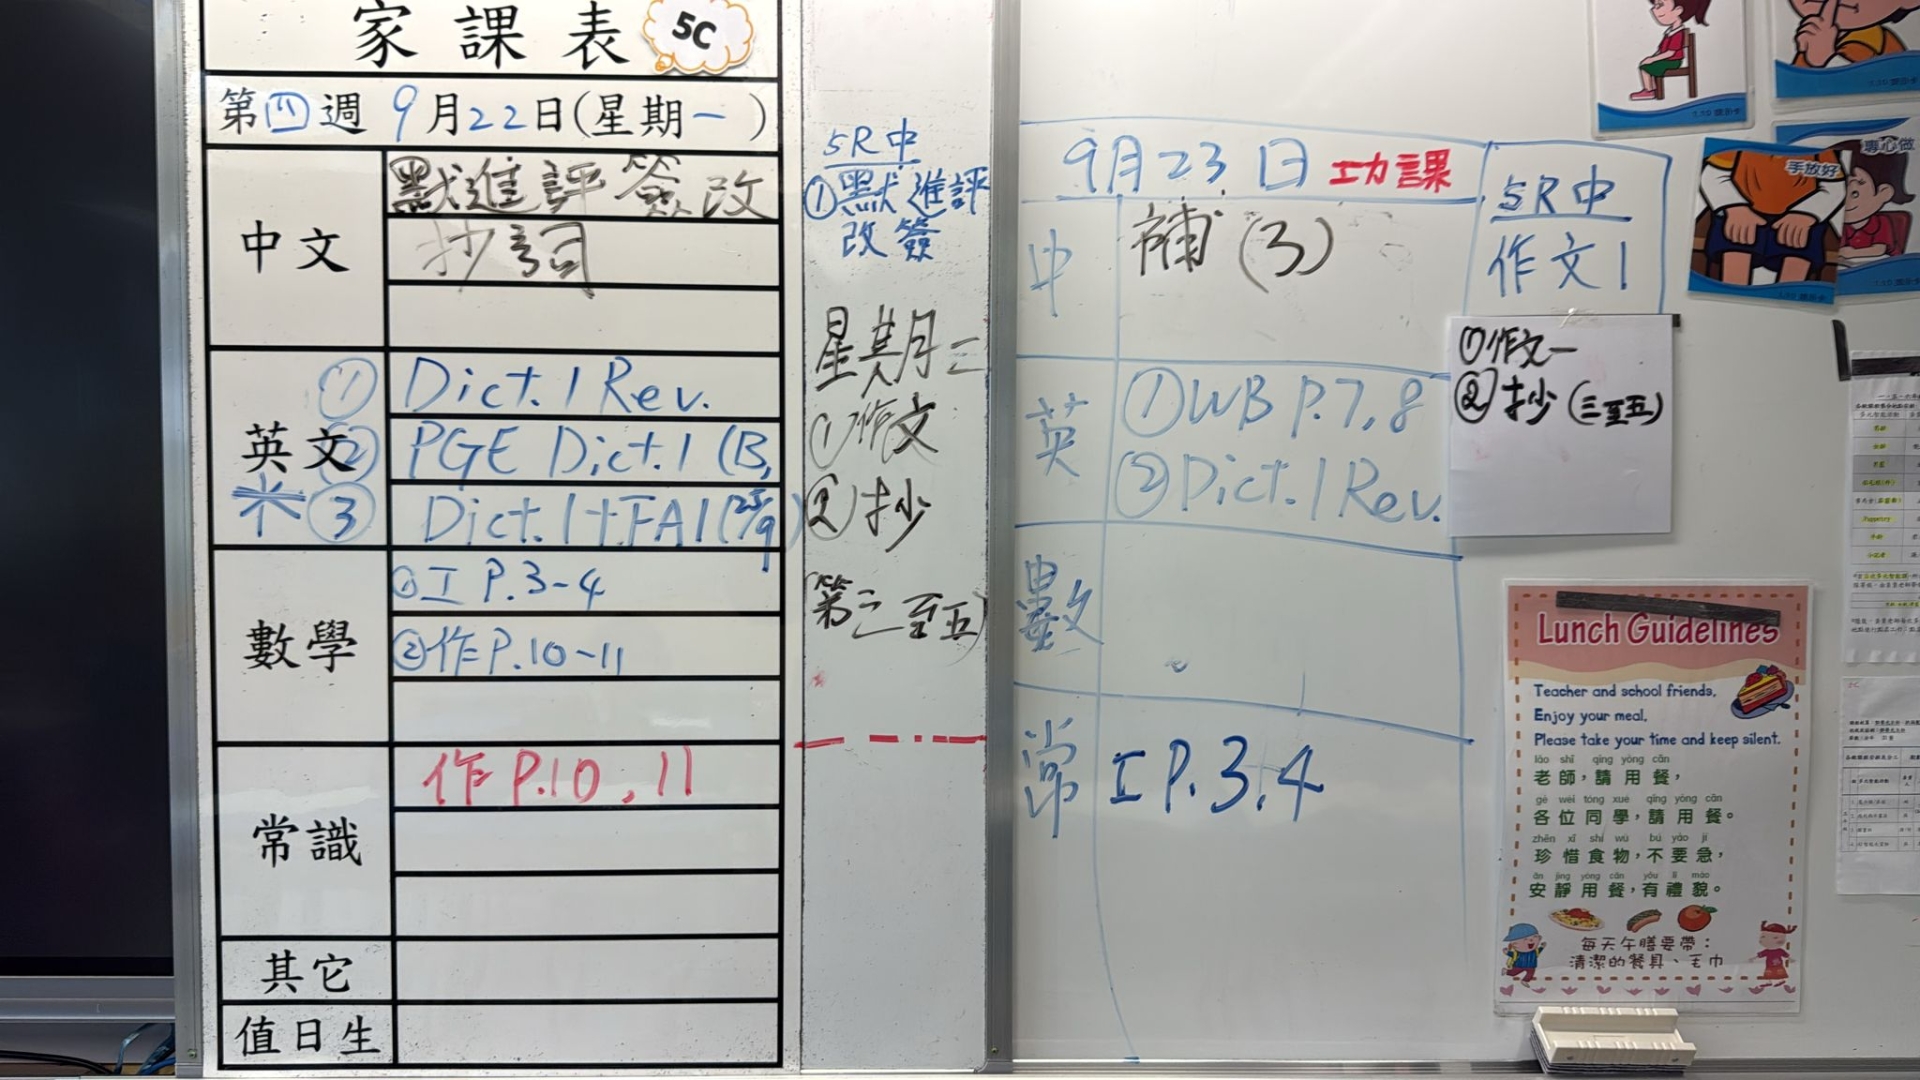 家課表 5C
第四週 9月22日(星期一)
中文
默進評簽改
抄詞
英文
① Dict. 1 Rev.
② PGE Dict. 1 (B,
*③ Dict. 1 + FA1 (25/9)
數學
①工 P.3-4
②作 P.10-11
常識
作 P.10, 11
其它
值日生
5R中
①默進評
改簽
星期三
①作文
②抄
(第三至五)
9月23日 功課
中
補(3)
5R中
作文1
①作文一
②抄(三至五)
英
①WB P.7, 8
②Dict. 1 Rev.
數
常
工 P.3, 4
手放好
專心做
Lunch Guidelines
Teacher and school friends,
Enjoy your meal,
Please take your time and keep silent.
lǎo shī qǐng yòng cān
老師，請用餐，
gè wèi tóng xué qǐng yòng cān
各位同學，請用餐。
zhēn xī shí wù bú yào jí
珍惜食物，不要急，
ān jìng yòng cān yǒu lǐ mào
安靜用餐，有禮貌。
每天午膳要帶：
清潔的餐具、毛巾